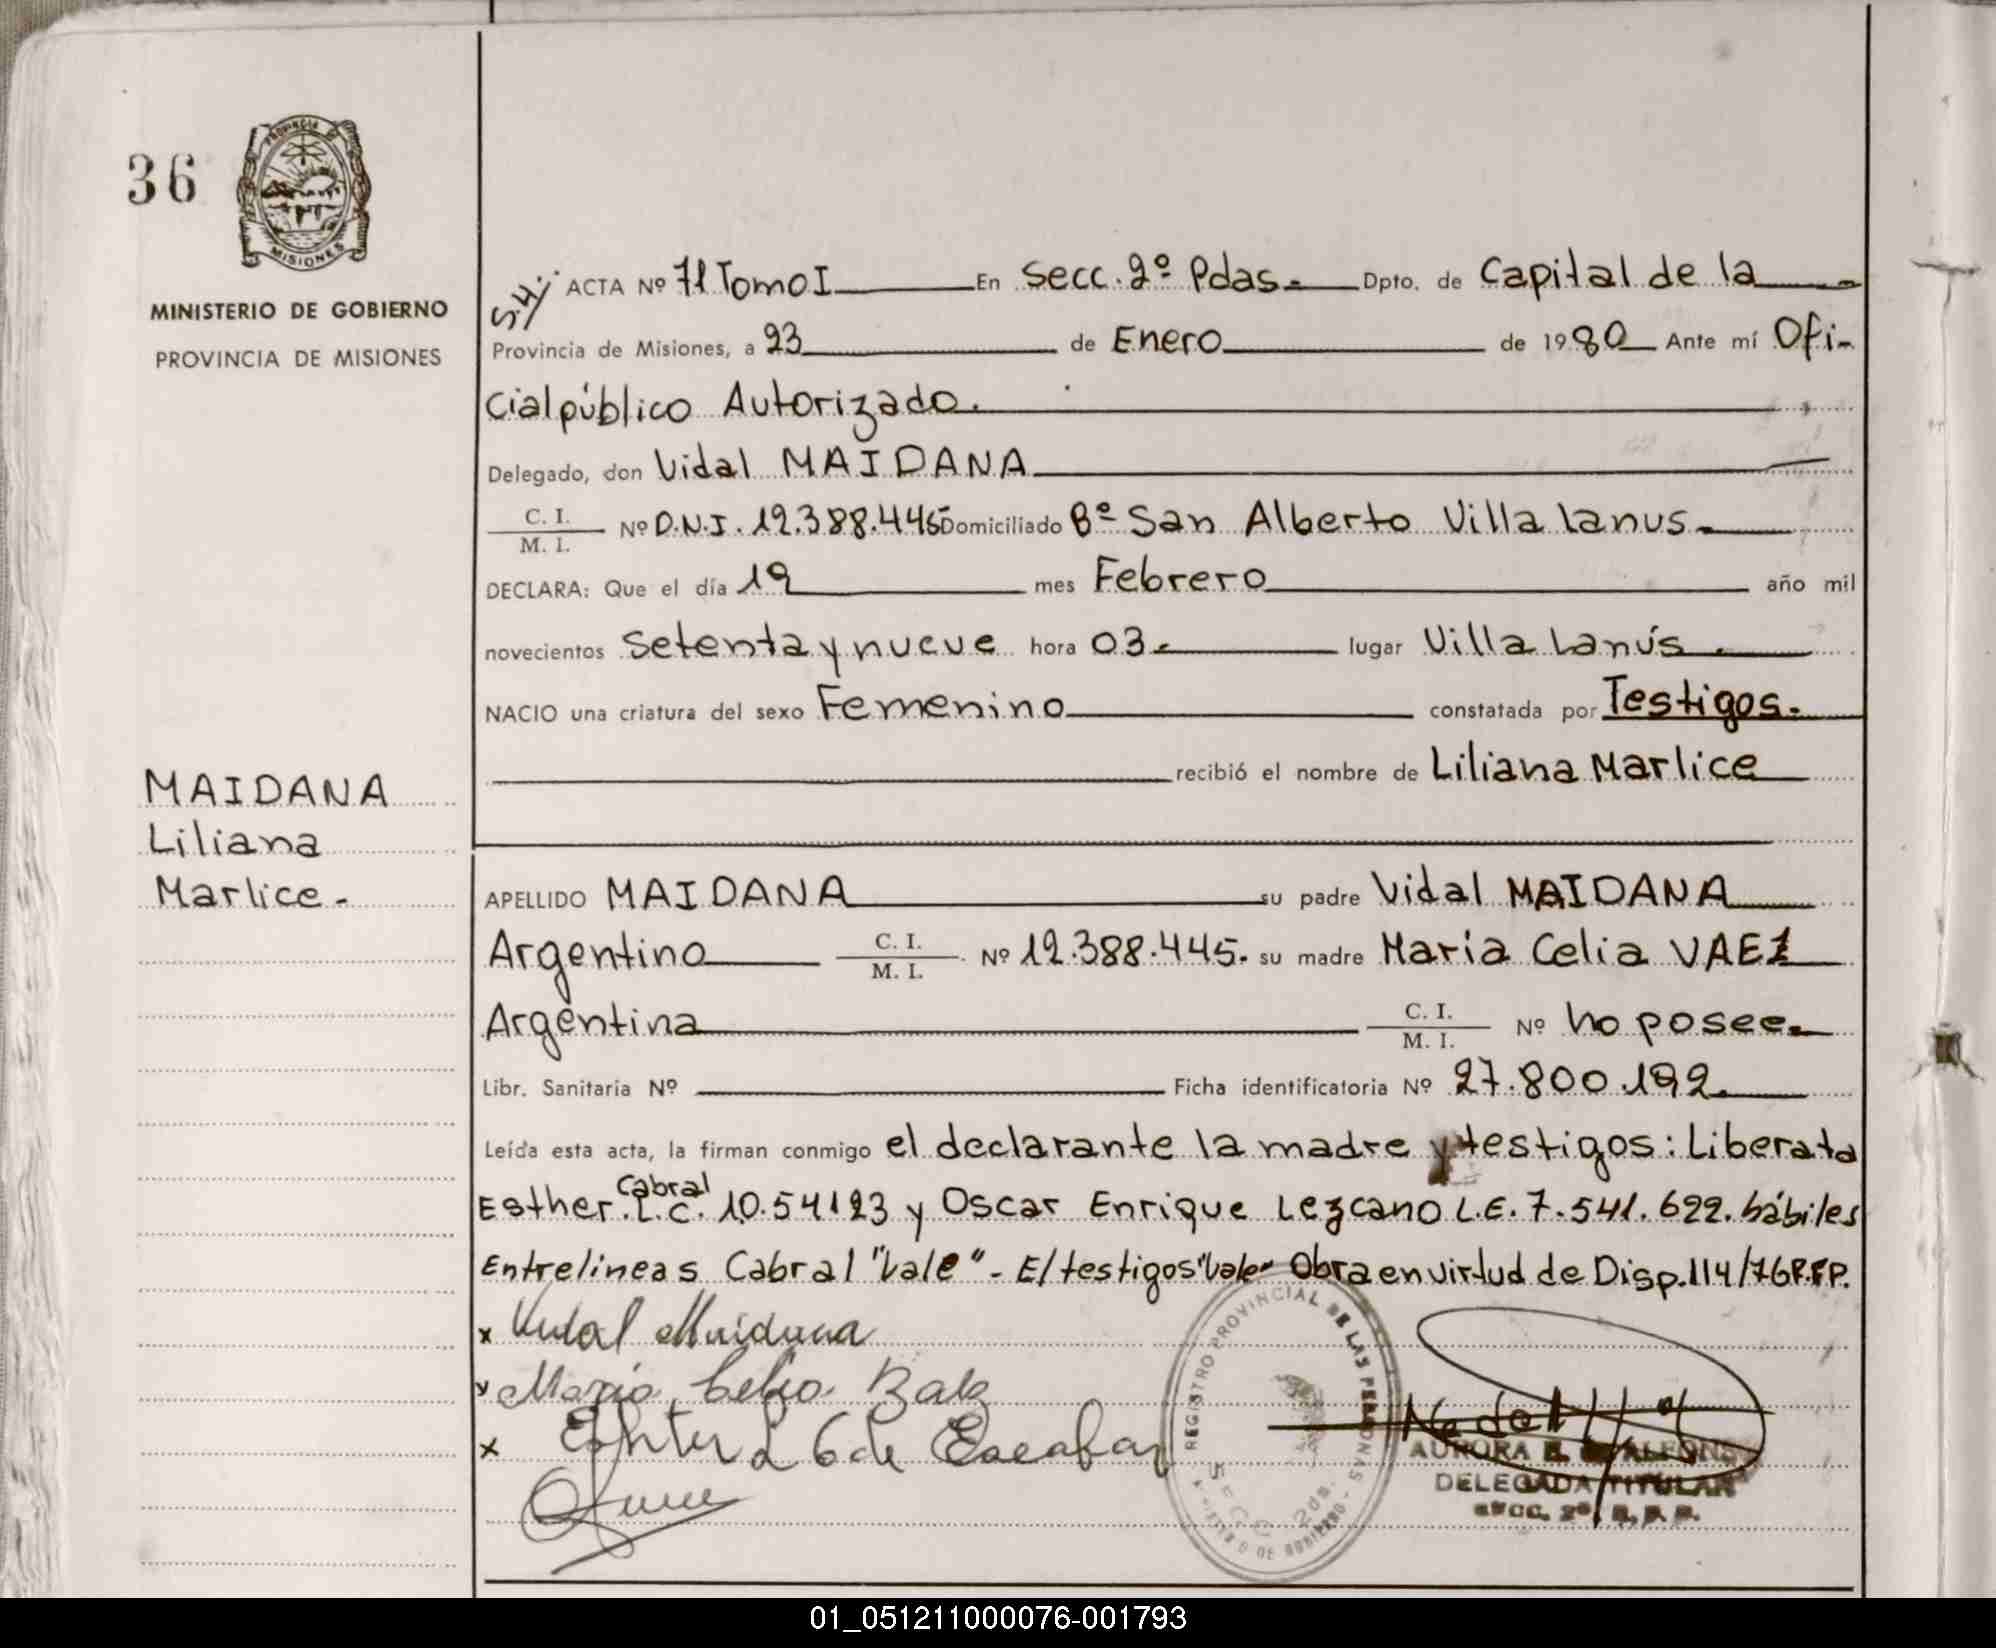 36
PROVINCIA DE
MISIONES
MINISTERIO DE GOBIERNO
PROVINCIA DE MISIONES
MAIDANA
Liliana
Marlice.-
ACTA Nº 71 Tomo I En Secc. 2º Pdas.- Dpto. de Capital de la
Provincia de Misiones, a 23 de Enero de 1980 Ante mí Ofi-
cial público Autorizado.
Delegado, don Vidal MAIDANA
C. I. / M. I. Nº D.N.I. 12.388.445 Domiciliado Bº San Alberto Villa Lanus.-
DECLARA: Que el día 19 mes Febrero año mil
novecientos Setenta y nueve hora 03.- lugar Villa Lanús.-
NACIO una criatura del sexo Femenino constatada por Testigos.-
recibió el nombre de Liliana Marlice
APELLIDO MAIDANA su padre Vidal MAIDANA
Argentino C. I. / M. I. Nº 12.388.445. su madre Maria Celia VAEZ
Argentina C. I. / M. I. Nº no posee.-
Libr. Sanitaria Nº Ficha identificatoria Nº 27.800.192.
Leída esta acta, la firman conmigo el declarante la madre y testigos: Liberata
Cabral
Esther. L.C. 10.54123 y Oscar Enrique Lezcano L.E. 7.541.622. hábiles
Entrelineas Cabral "Vale" - E/testigos "Vale" Obra en virtud de Disp. 114/76 R.F.P.
x Vidal Maidana
Maria Celia Baez
x Eshter L G de Escobar
REGISTRO PROVINCIAL DE LAS PERSONAS
AURORA E. ALFONSO
DELEGADA TITULAR
SECC. 2ª R. P. P.
01_051211000076-001793